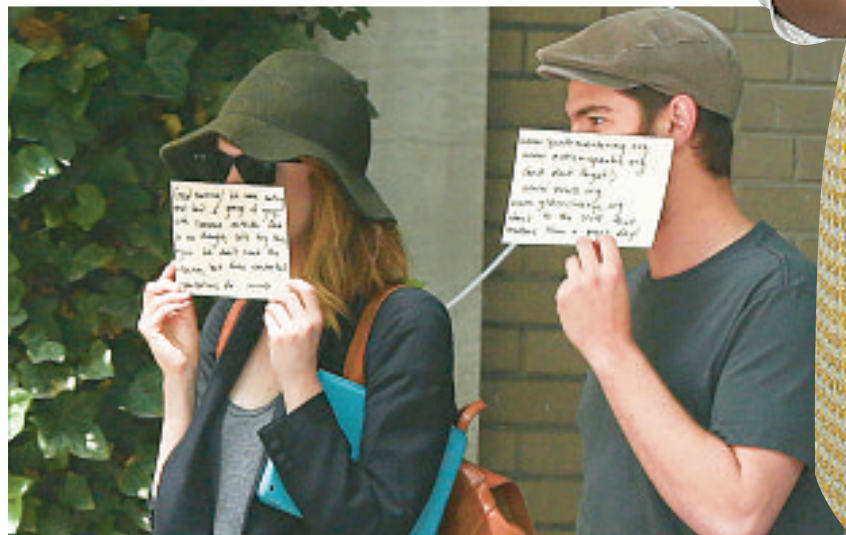 Good morning! We were eating
and saw a group of guys
with cameras outside. And
so we thought, let's try this
again. We don't need the
attention, but these wonderful
organizations do:
www.youthmentoring.org
www.autismspeaks.org
(and don't forget:)
www.wwo.org
www.gildasclub.org
Here's to the stuff that
matters. Have a great day!